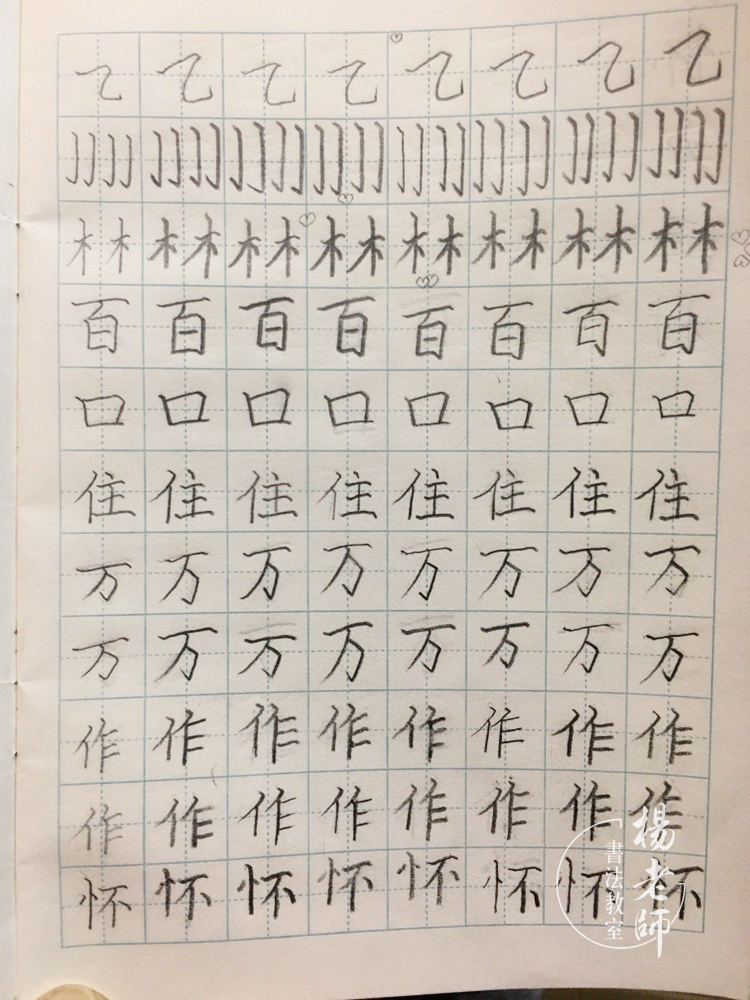 乙乙乙乙乙乙乙乙
林林林林林林林林
百百百百百百百百
口口口口口口口口
住住住住住住住住
万万万万万万万万
万万万万万万万万
作作作作作作作作
作作作作作作作作
怀怀怀怀怀怀怀怀
楊老師
書法教室